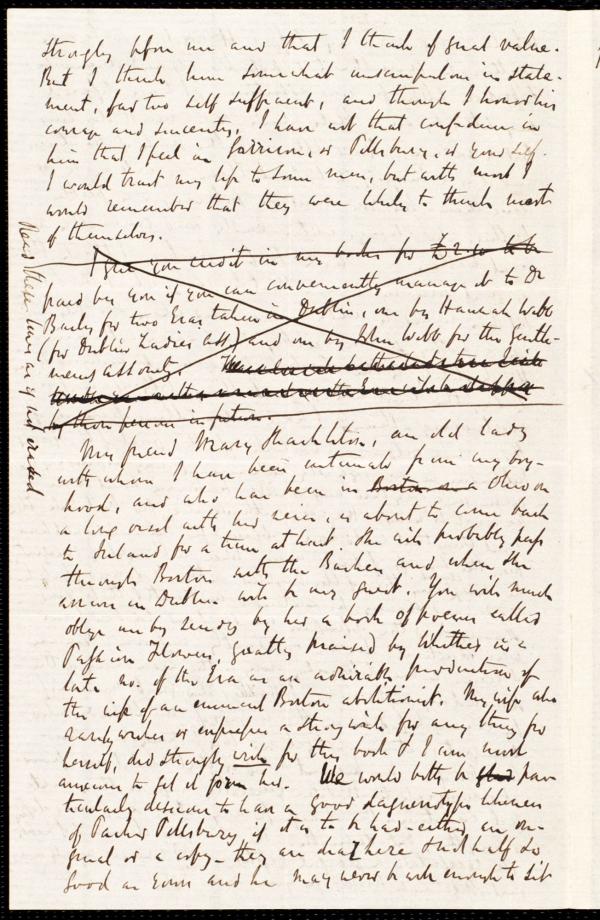 strongly before me and that I think of great value.
But I think him somewhat unscrupulous in state-
ment, far too self sufficient, and though I honor his
courage and sincerity, I have not that confidence in
him that I feel in Garrison, or Pillsbury, or yourself.
I would trust my life to some men, but with most I
would remember that they were likely to think most
of themselves.
I give you credit in my books for £2.10 to be
paid by you if you can conveniently manage it to Dr
Bailey for two Eras taken in Dublin, one by Hannah Webb
(for Dublin Ladies Ass) and one by John Webb for the Gentle-
men's Ass only.
by those persons in future.
My friend Mary Shackleton, an old lady
with whom I have been intimate from my boy-
hood, and who has been in Boston on a Ohio on
a long visit with her niece, is about to come back
to Ireland for a time at least. She will probably pass
through Boston with the Bashers and when she
arrives in Dublin will be my guest. You will much
oblige me by sending by her a book of poems called
Passion Flowers, greatly praised by Whittier in a
late no. of the Era as an admirable production of
the wife of an eminent Boston abolitionist. My wife who
rarely wishes or expresses a strong wish for any thing for
herself, did strongly wish for this book & I am most
anxious to get it for her. We would both be glad par
ticularly desirous to have a good daguerreotype likeness
of Parker Pillsbury if it is to be had - either an ori-
ginal or a copy - they are dear here and half so
good as yours and he may never be well enough to sit
Read these lines as if not erased